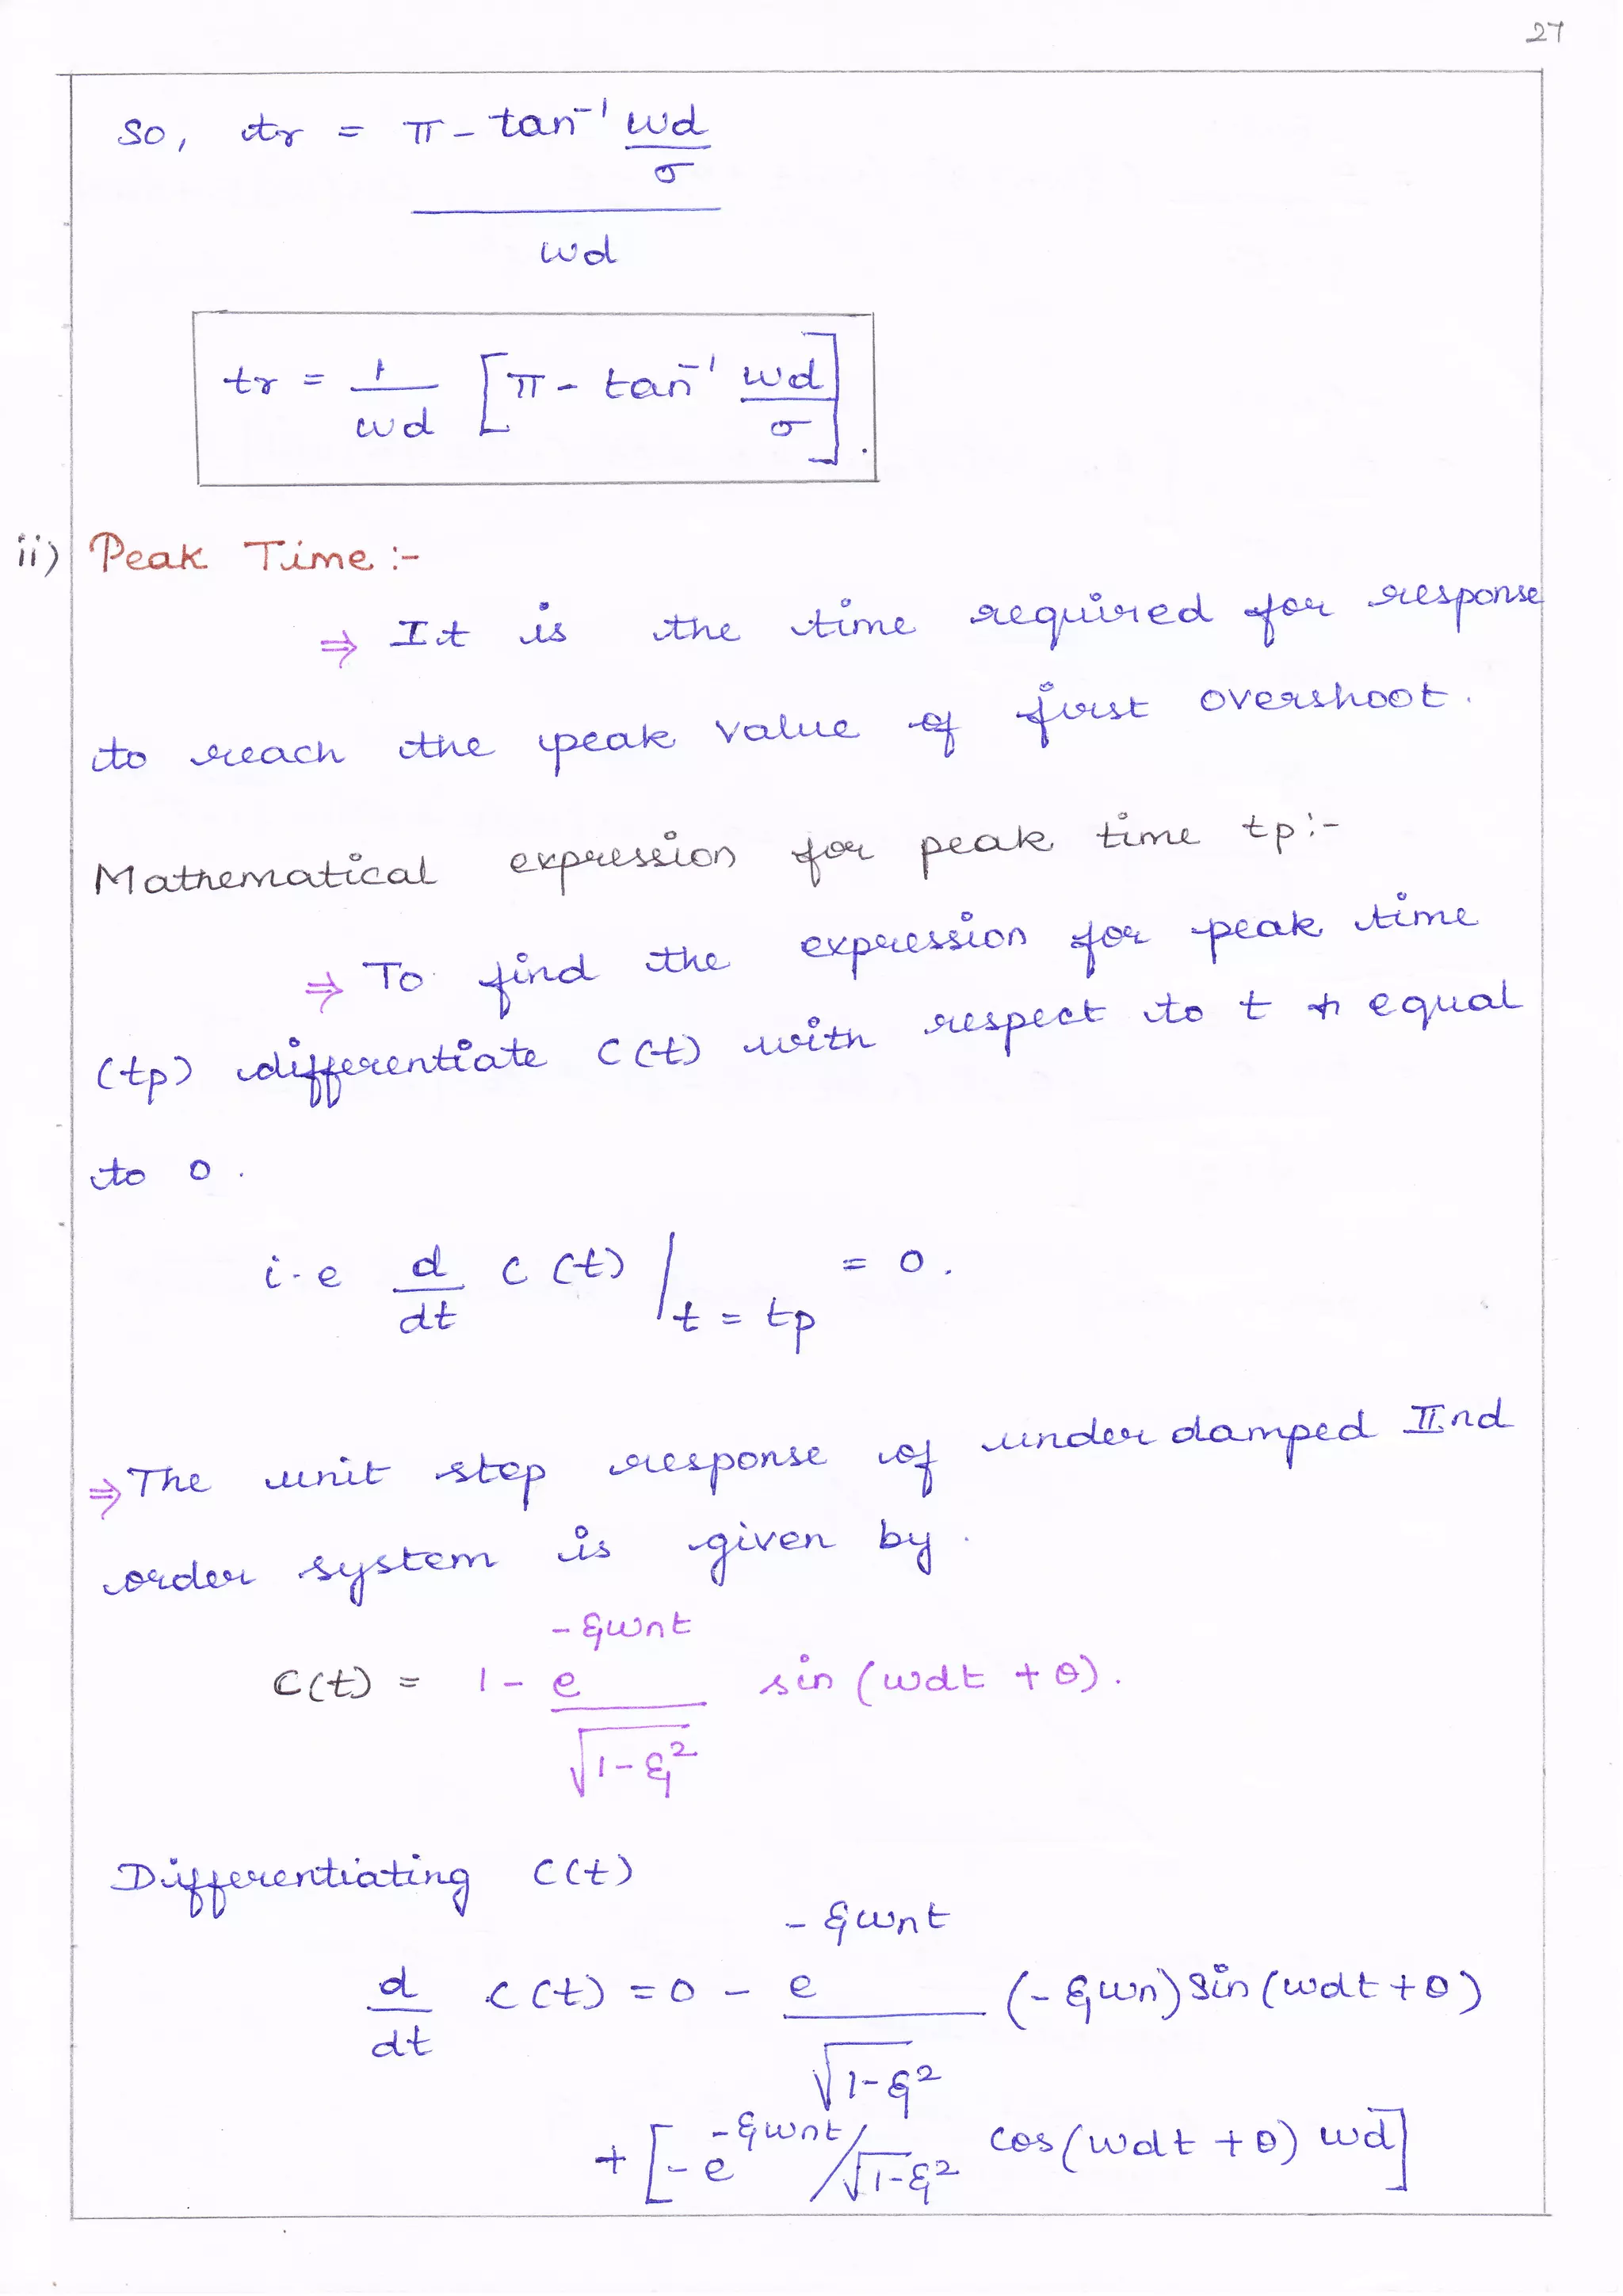 27
So, tr = π - tan⁻¹ wd/σ
wd
tr = 1/wd [π - tan⁻¹ wd/σ].
ii) Peak Time :-
⇒ It is the time required for response
to reach the peak value of first overshoot.
Mathematical expression for peak time tp:-
⇒ To find the expression for peak time
(tp) differentiate C(t) with respect to t & equal
to 0.
i.e d/dt C(t) |t = tp = 0.
⇒ The unit step response of under damped IInd
order system is given by.
C(t) = 1 - e^(-ξwnt)/√(1-ξ²) sin (wdt + θ).
Differentiating C(t)
d/dt C(t) = 0 - e^(-ξwnt)/√(1-ξ²) (-ξwn) sin (wdt + θ)
+ [-e^(-ξwnt)/√(1-ξ²) cos (wdt + θ) wd]